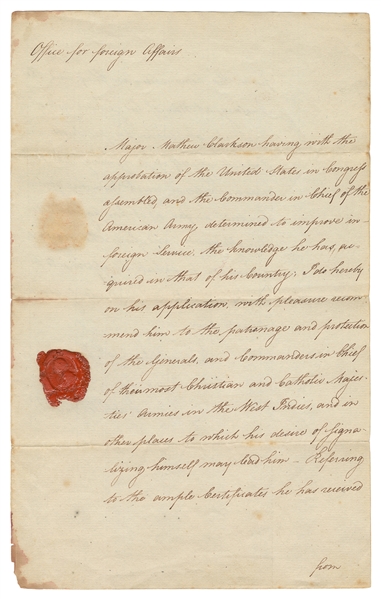 Office for foreign Affairs
Major Mathew Clarkson having with the
approbation of the United States in Congress
assembled, and the Commander in Chief of the
American Army, determined to improve in
foreign Service, the knowledge he has, ac
quired in that of his Country; I do hereby
on his application, with pleasure recom
mend him to the patronage and protection
of the Generals, and Commanders in Chief
of their most Christian and Catholic Majes
ties Armies in the West Indies, and in
other places to which his desire of Signa
lizing himself may lead him – Referring
to the ample Certificates he has received
from